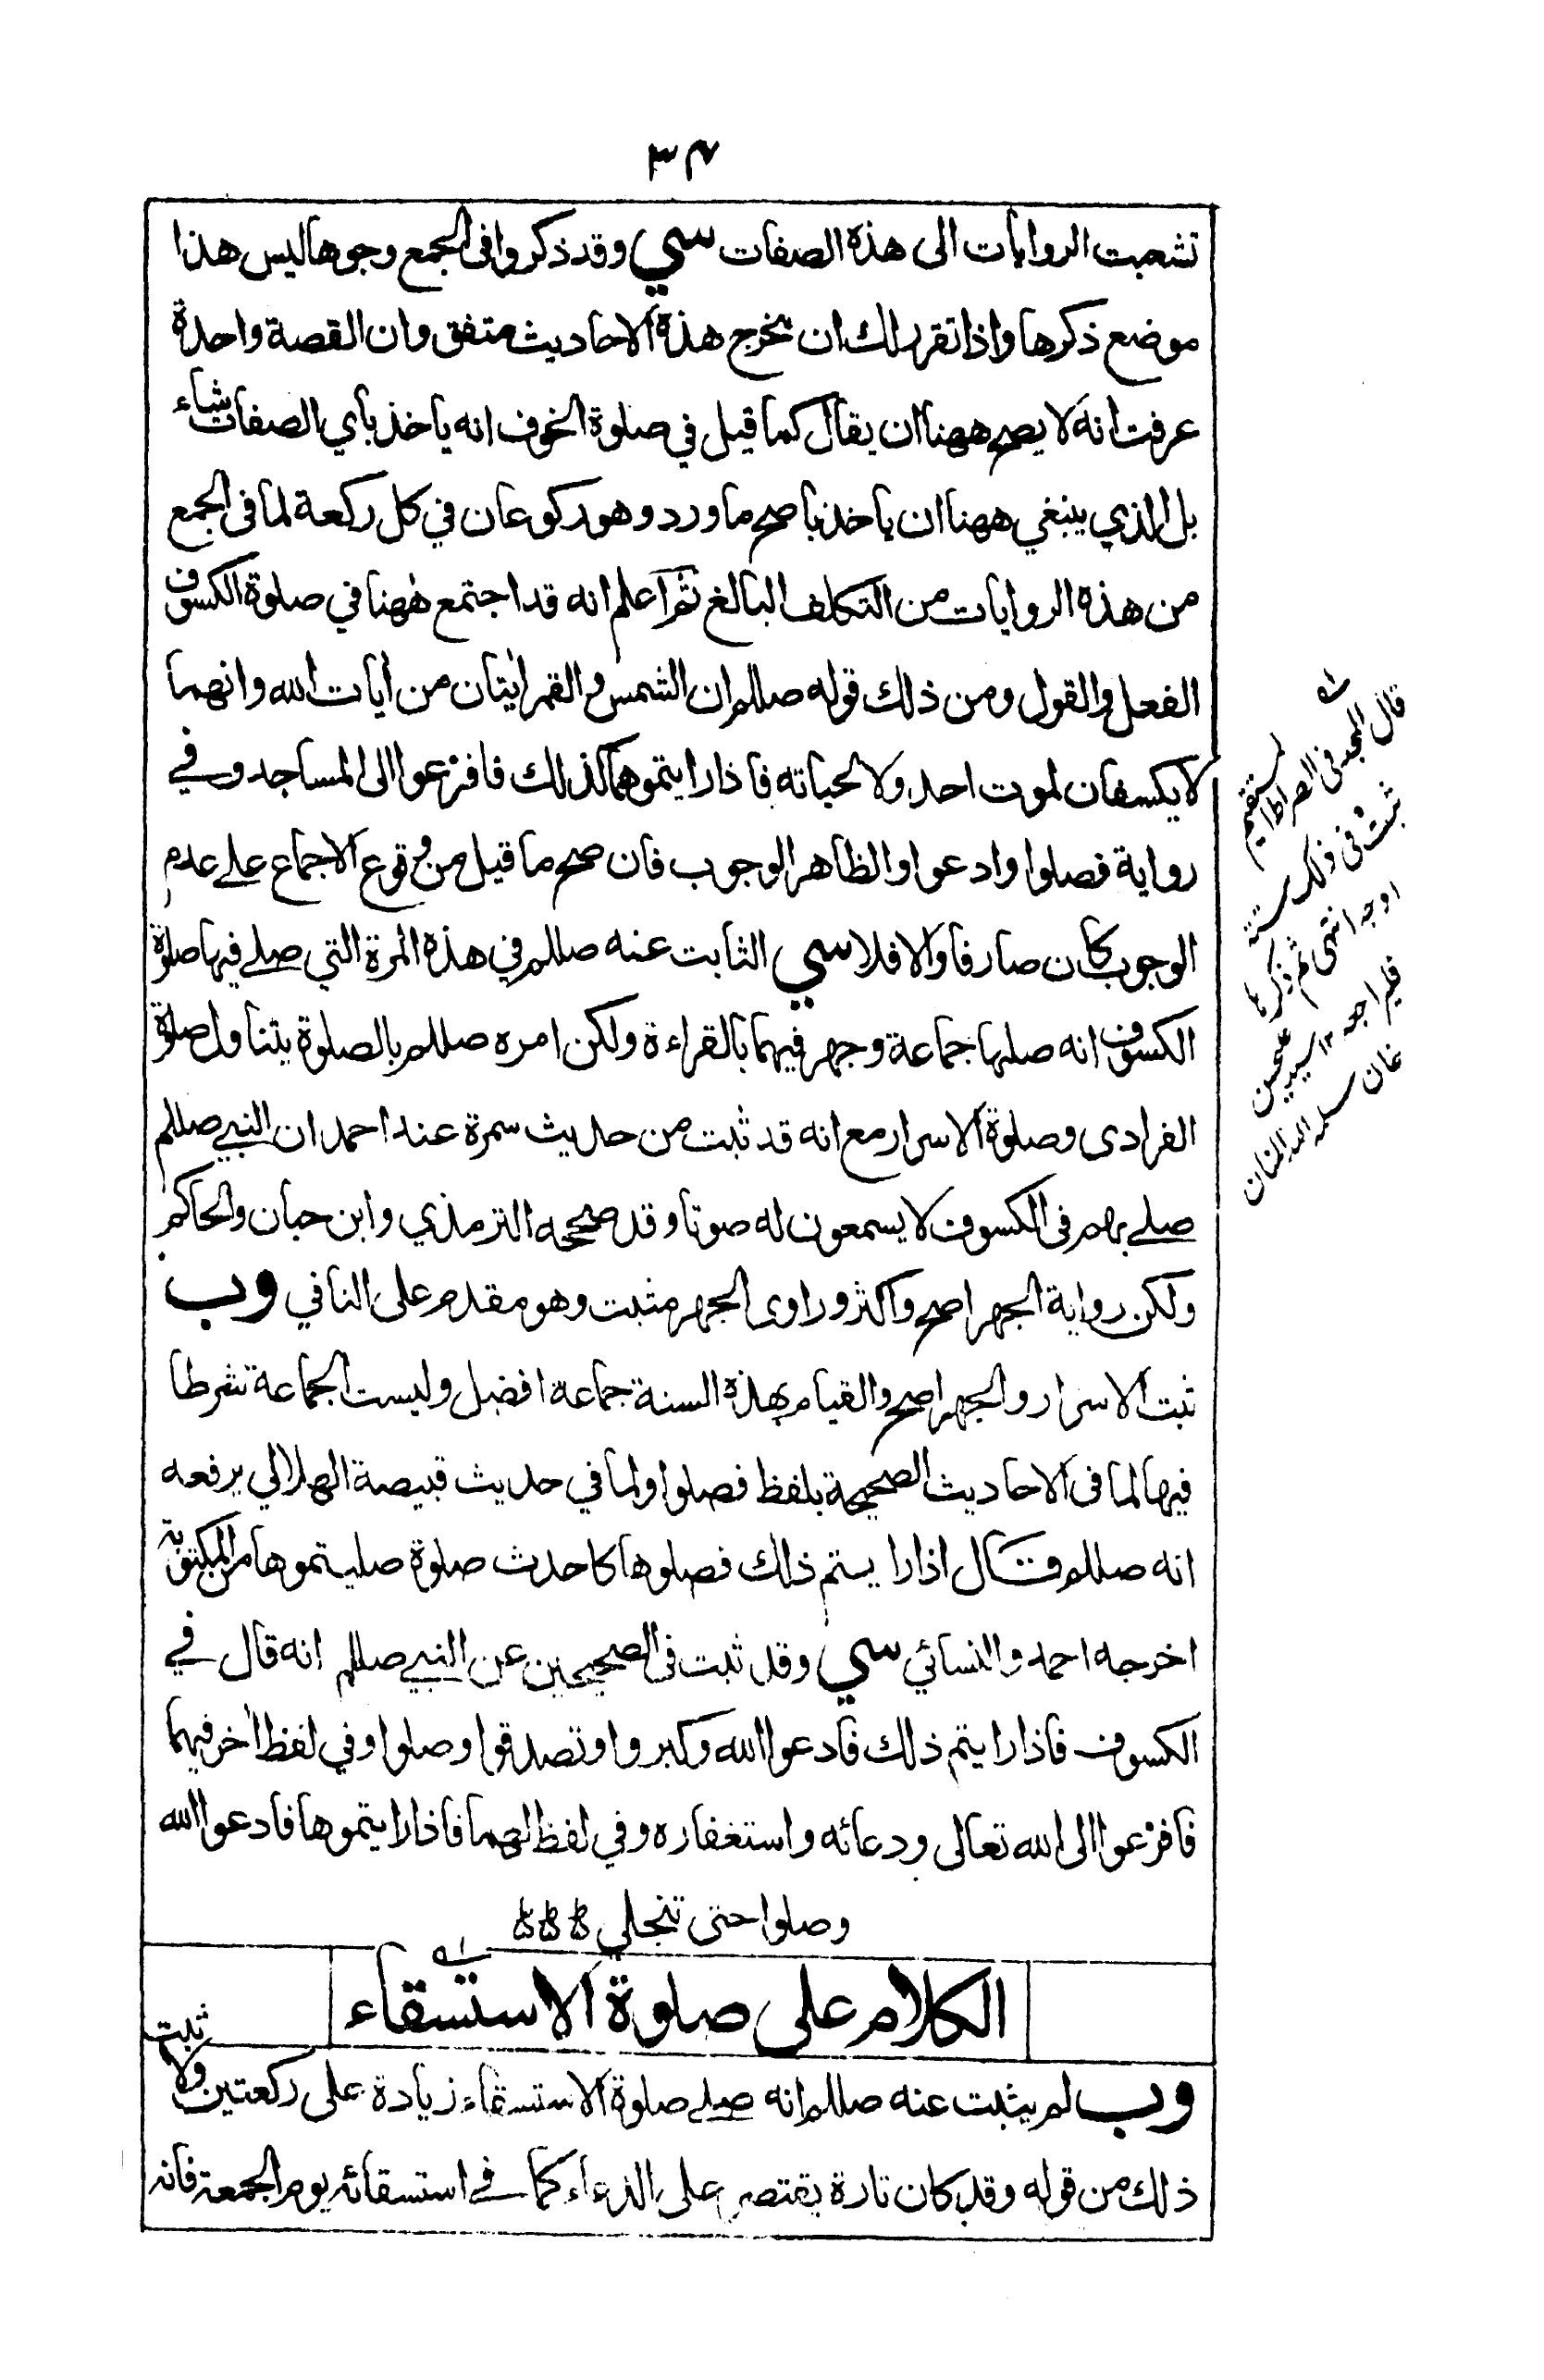 ٣٤
تشعبت الروايات الى هذه الصفات سي وقد ذكروا فى الجمع وجوها ليس هذا
موضع ذكرها واذا تقرر لك ان مخرج هذه الاحاديث متفق وان القصة واحدة
عرفت انه لا يصح ههنا ان يقال كما قيل في صلوة الخوف انه ياخذ بأي الصفات شاء
بل الذي ينبغي ههنا ان ياخذ باصح ما ورد وهو ركوعان في كل ركعة لما فى الجمع
من هذه الروايات من التكلف البالغ ثم اعلم انه قد اجتمع ههنا في صلوة الكسوف
الفعل والقول ومن ذلك قوله صللم ان الشمس والقمر اٰيتان من اٰيات الله وانهما
لا يكسفان لموت احد ولا لحياته فاذا رايتموهما كذلك فافزعوا الى المساجد وفي
رواية فصلوا وادعوا والظاهر الوجوب فان صح ما قيل من وقوع الاجماع علے عدم
الوجوب كان صارفا والا فلا سي الثابت عنه صللم في هذه المرة التي صلے فيها صلوة
الكسوف انه صلها جماعة وجهر فيهما بالقراءة ولكن امره صللم بالصلوة يتناول صلوة
الفرادى وصلوة الاسرار مع انه قد ثبت من حديث سمرة عند احمد ان النبي صللم
صلے بهم فى الكسوف لا يسمعون له صوتا وقد صححه الترمذي وابن حبان والحاكم
ولكن رواية الجهر اصح واكثر وراوى الجهر مثبت وهو مقدم على النافي وب
ثبت الاسرار والجهر اصح والقيام بهذه السنة جماعة افضل وليست الجماعة شرطا
فيها لما فى الاحاديث الصحيحة بلفظ فصلوا ولما في حديث قبيصة الهلالي يرفعه
انه صللم قال اذا رايتم ذلك فصلوها كاحدث صلوة صليتموها من المكتوبة
اخرجه احمد والنسائي سي وقد ثبت فى الصحيحين عن النبي صللم انه قال في
الكسوف فاذا رايتم ذلك فادعوا الله وكبروا وتصدقوا وصلوا وفي لفظ اٰخر فيهما
فافزعوا الى الله تعالى ودعائه واستغفاره وفي لفظ لهما فاذا رايتموها فادعوا الله
وصلوا حتى تنجلي
الكلام على صلوة الاستسقاء
وب لم يثبت عنه صللم انه صلے صلوة الاستسقاء زيادة على ركعتين ولا ثبت
ذلك من قوله وقد كان تارة يقتصر على الدعاء كما في استسقائه يوم الجمعة فانه
قال المجد فى الصراط المستقيم
ثبت فى ذلك ستة
اوجه انتهى ثم ذكرها
فليراجعه ١٢ سيد علمحسن
خان سلمه الله المنان